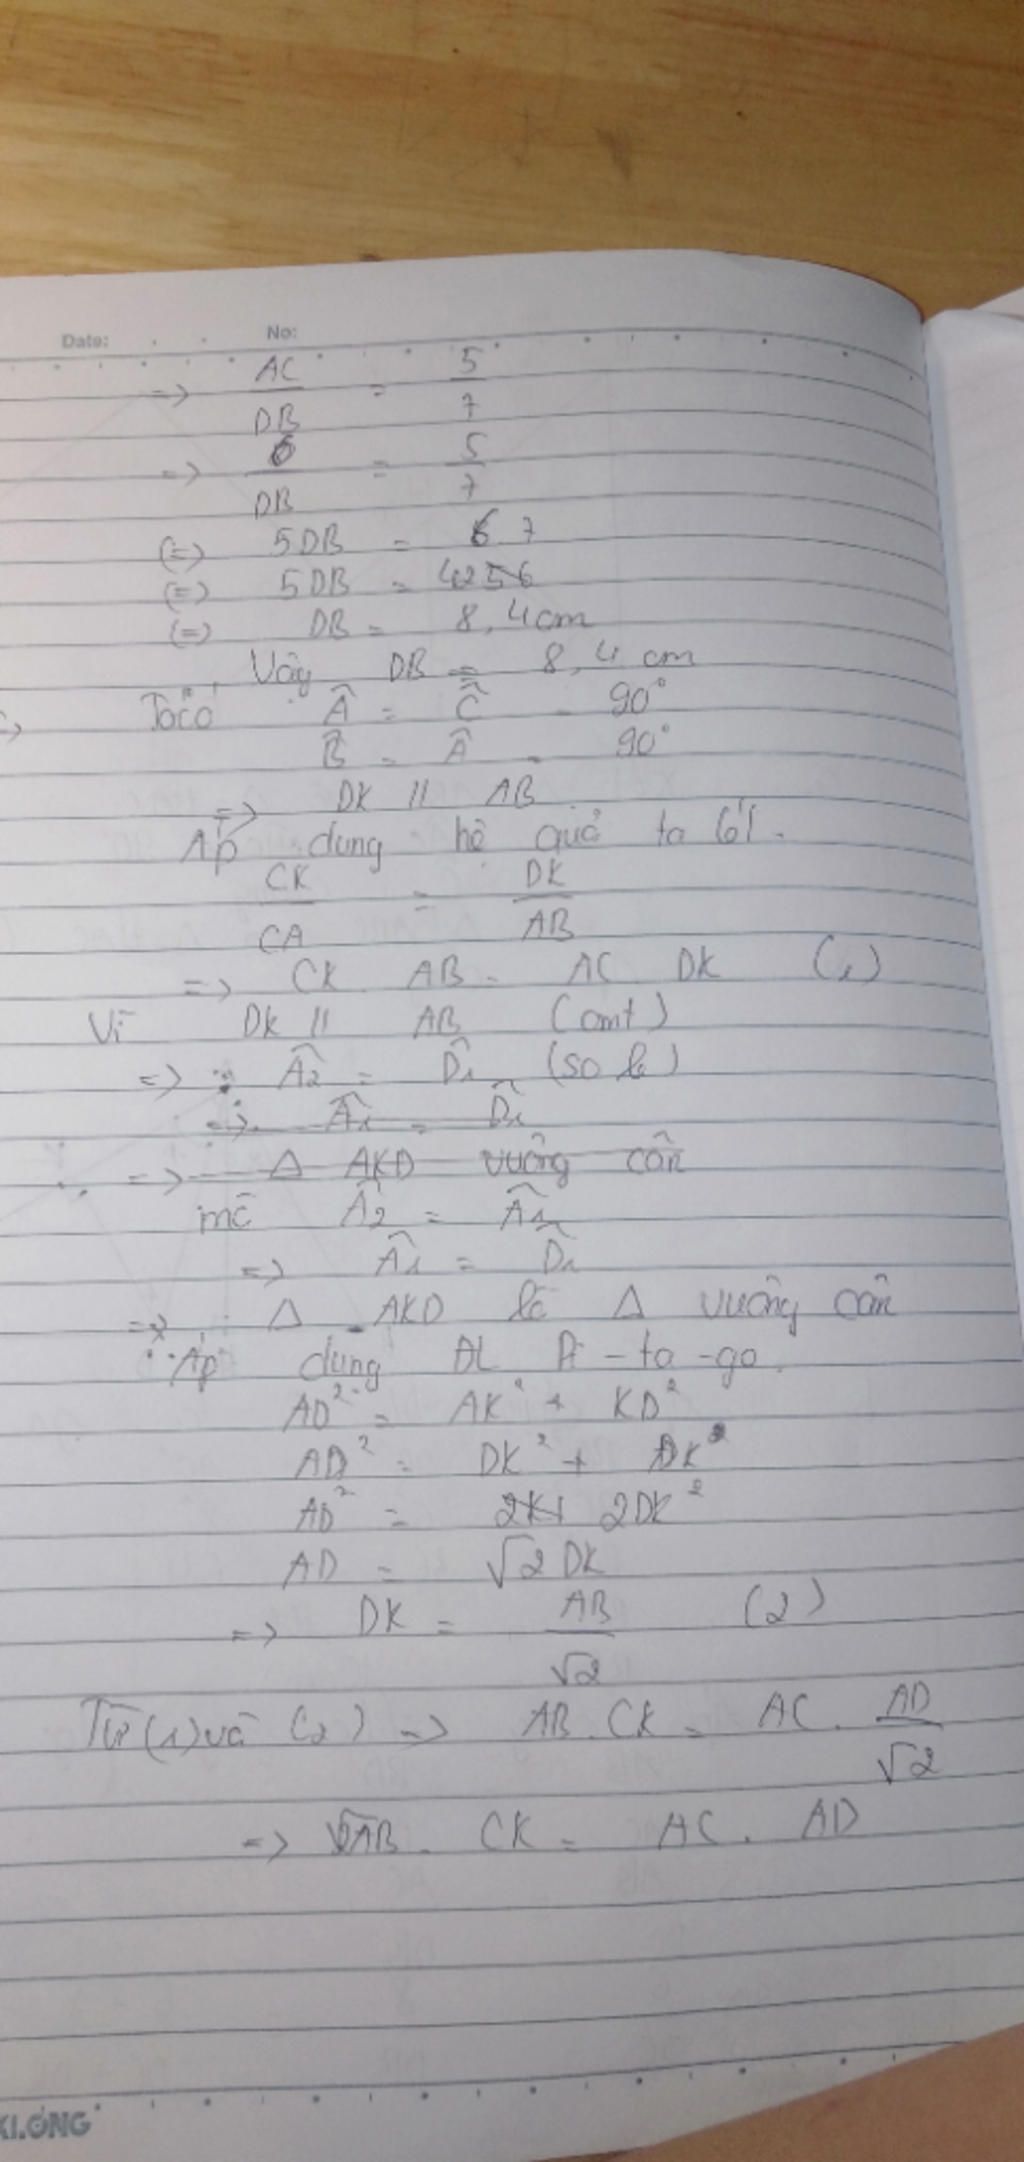 Date: No:
=> AC/DB = 5/7
=> 6/DB = 5/7
(=) 5DB = 6 7
(=) 5DB = 42
(=) DB = 8,4cm
Vậy DB = 8,4 cm
Ta có Â = Ĉ = 90°
B̂ = Â = 90°
=> DK // AB
Áp dụng hệ quả ta lét
CK/CA = DK/AB
=> CK . AB = AC DK (1)
Vì DK // AB (cmt)
=> Â2 = D̂1 (so le)
=> Â1 = D̂1
=> Δ AKD vuông cân
mà Â2 = Â1
=> Â1 = D̂1
=> Δ AKD là Δ vuông cân
Áp dụng ĐL Pi-ta-go
AD² = AK² + KD²
AD² = DK² + DK²
AD² = 2DK²
AD = √2 DK
=> DK = AB/√2 (2)
Từ (1) và (2) => AB . CK = AC . AD/√2
=> √2AB . CK = AC . AD
KLONG